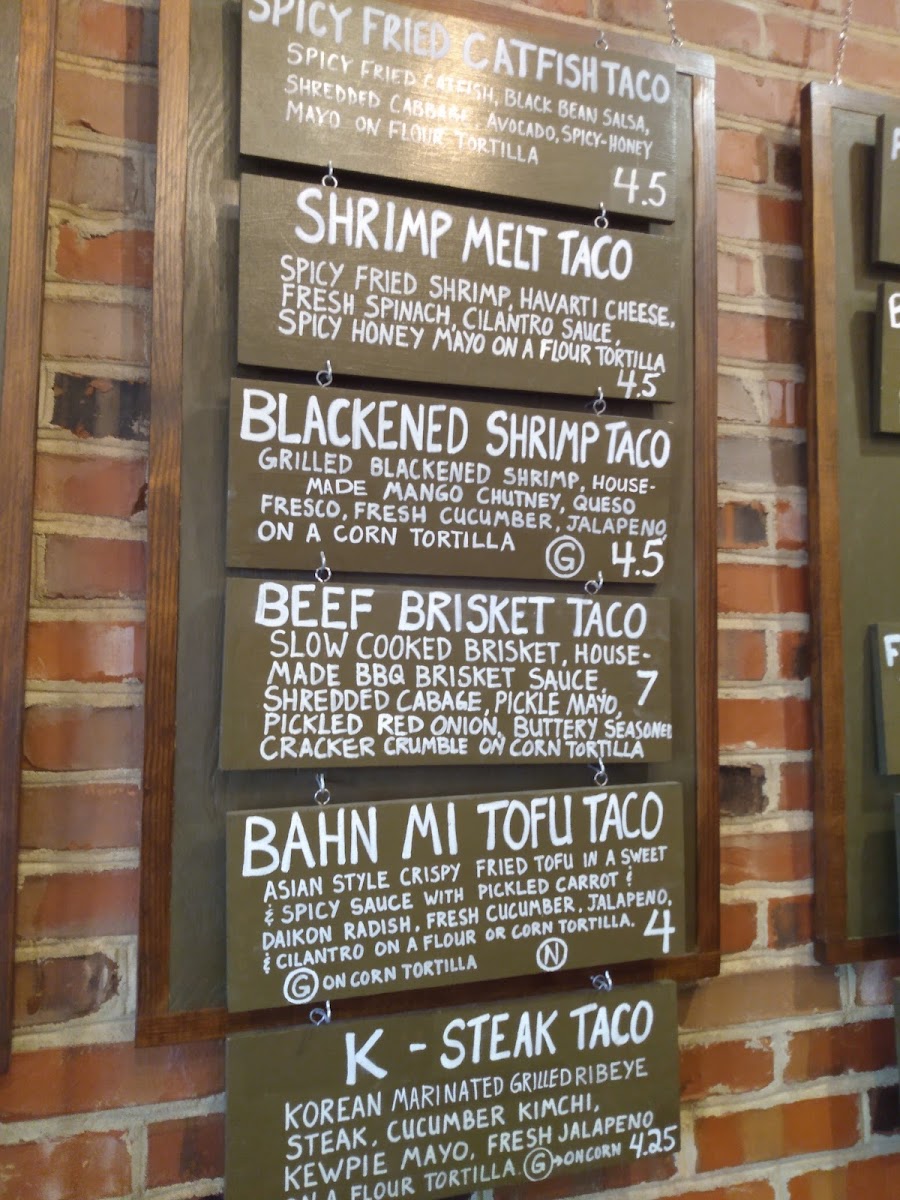 SPICY FRIED CATFISH TACO
SPICY FRIED CATFISH, BLACK BEAN SALSA,
SHREDDED CABBAGE, AVOCADO, SPICY-HONEY
MAYO ON FLOUR TORTILLA
4.5
SHRIMP MELT TACO
SPICY FRIED SHRIMP, HAVARTI CHEESE,
FRESH SPINACH, CILANTRO SAUCE,
SPICY HONEY MAYO ON A FLOUR TORTILLA
4.5
BLACKENED SHRIMP TACO
GRILLED BLACKENED SHRIMP, HOUSE-
MADE MANGO CHUTNEY, QUESO
FRESCO, FRESH CUCUMBER, JALAPENO
ON A CORN TORTILLA G 4.5
BEEF BRISKET TACO
SLOW COOKED BRISKET, HOUSE-
MADE BBQ BRISKET SAUCE,
SHREDDED CABAGE, PICKLE MAYO, 7
PICKLED RED ONION, BUTTERY SEASONED
CRACKER CRUMBLE ON CORN TORTILLA
BAHN MI TOFU TACO
ASIAN STYLE CRISPY FRIED TOFU IN A SWEET
& SPICY SAUCE WITH PICKLED CARROT &
DAIKON RADISH, FRESH CUCUMBER, JALAPENO,
& CILANTRO ON A FLOUR OR CORN TORTILLA. 4
G ON CORN TORTILLA N
K - STEAK TACO
KOREAN MARINATED GRILLED RIBEYE
STEAK, CUCUMBER KIMCHI,
KEWPIE MAYO, FRESH JALAPENO
ON A FLOUR TORTILLA. G→ON CORN 4.25